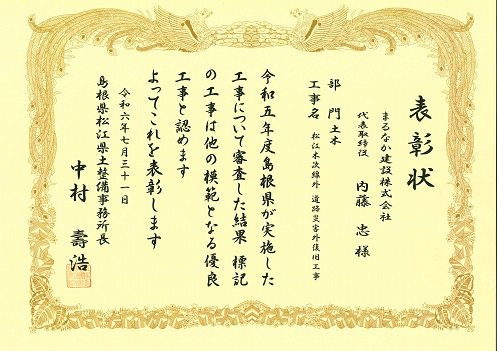 表彰状
まるなか建設株式会社
代表取締役 内藤 忠 様
部門 土木
工事名 松江木次線外 道路災害外復旧工事
令和五年度島根県が実施した
工事について審査した結果 標記
の工事は他の模範となる優良
工事と認めます
よってこれを表彰します
令和六年七月三十一日
島根県松江県土整備事務所長
中村 壽浩